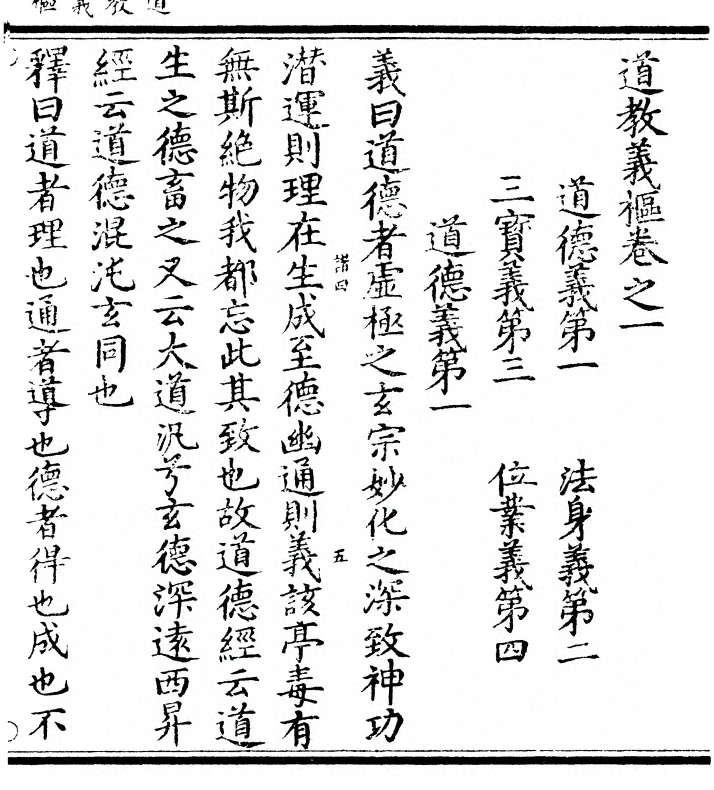 道教義樞卷之一
道德義第一　法身義第二
三寶義第三　位業義第四
道德義第一
義曰道德者虛極之玄宗妙化之深致神功
諸四　五
潜運則理在生成至德幽通則義該亭毒有
無斯絶物我都忘此其致也故道德經云道
生之德畜之又云大道汎兮玄德深遠西昇
經云道德混沌玄同也
釋曰道者理也通者導也德者得也成也不